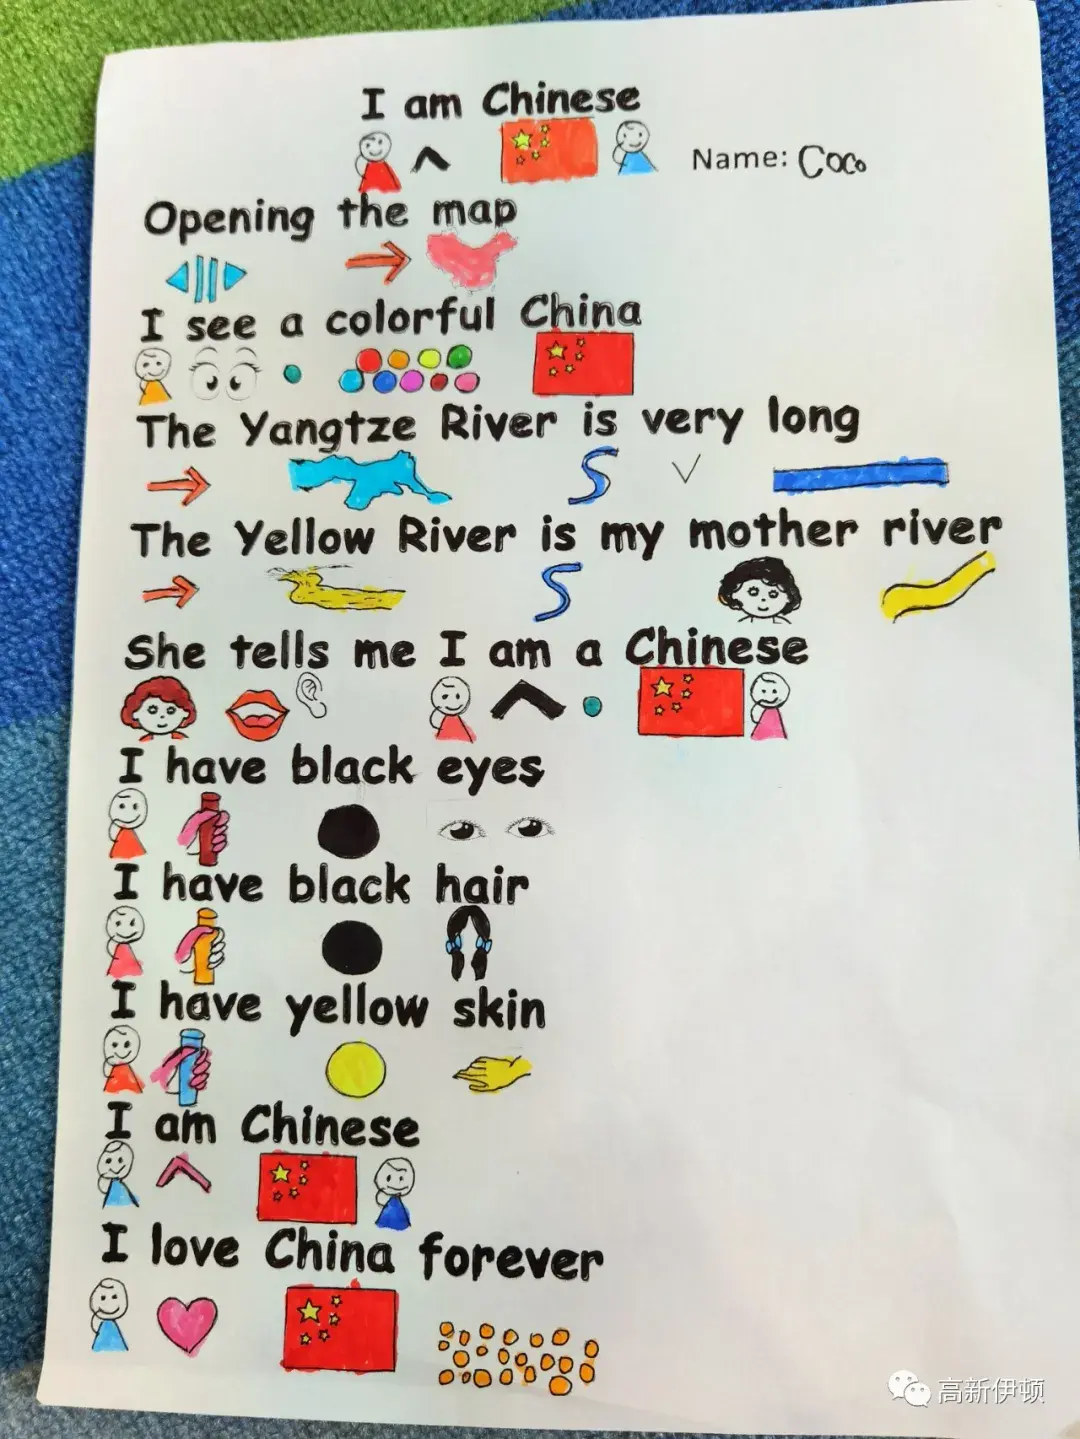 I am Chinese
Name: Coco
Opening the map
I see a colorful China
The Yangtze River is very long
The Yellow River is my mother river
She tells me I am a Chinese
I have black eyes
I have black hair
I have yellow skin
I am Chinese
I love China forever
高新伊顿